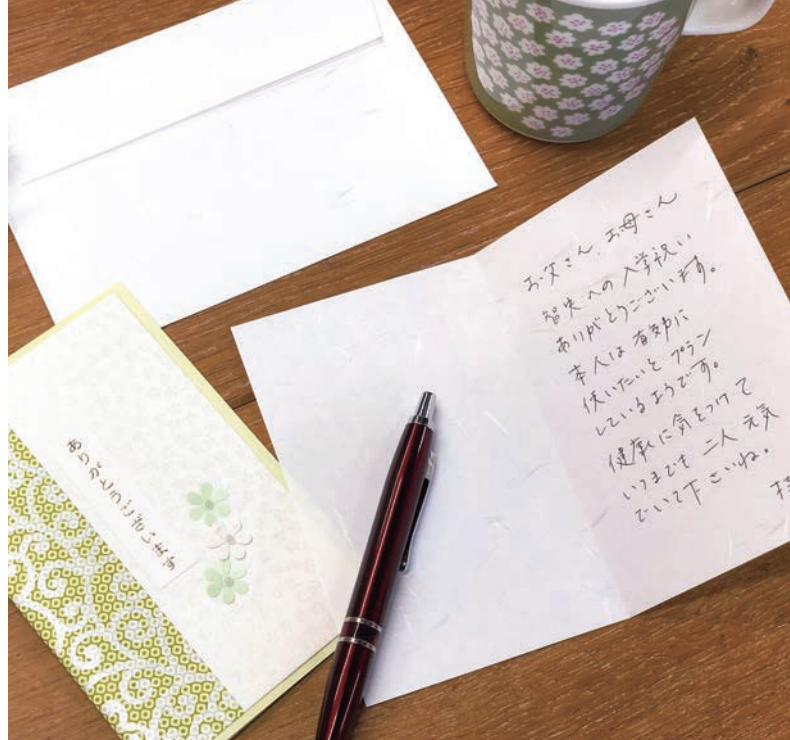 ありがとうございます
お父さん、お母さん
智央への入学祝い
ありがとうございます。
本人は有効に
使いたいとプラン
しているようです。
健康に気をつけて
いつまでも二人元気
でいて下さいね。